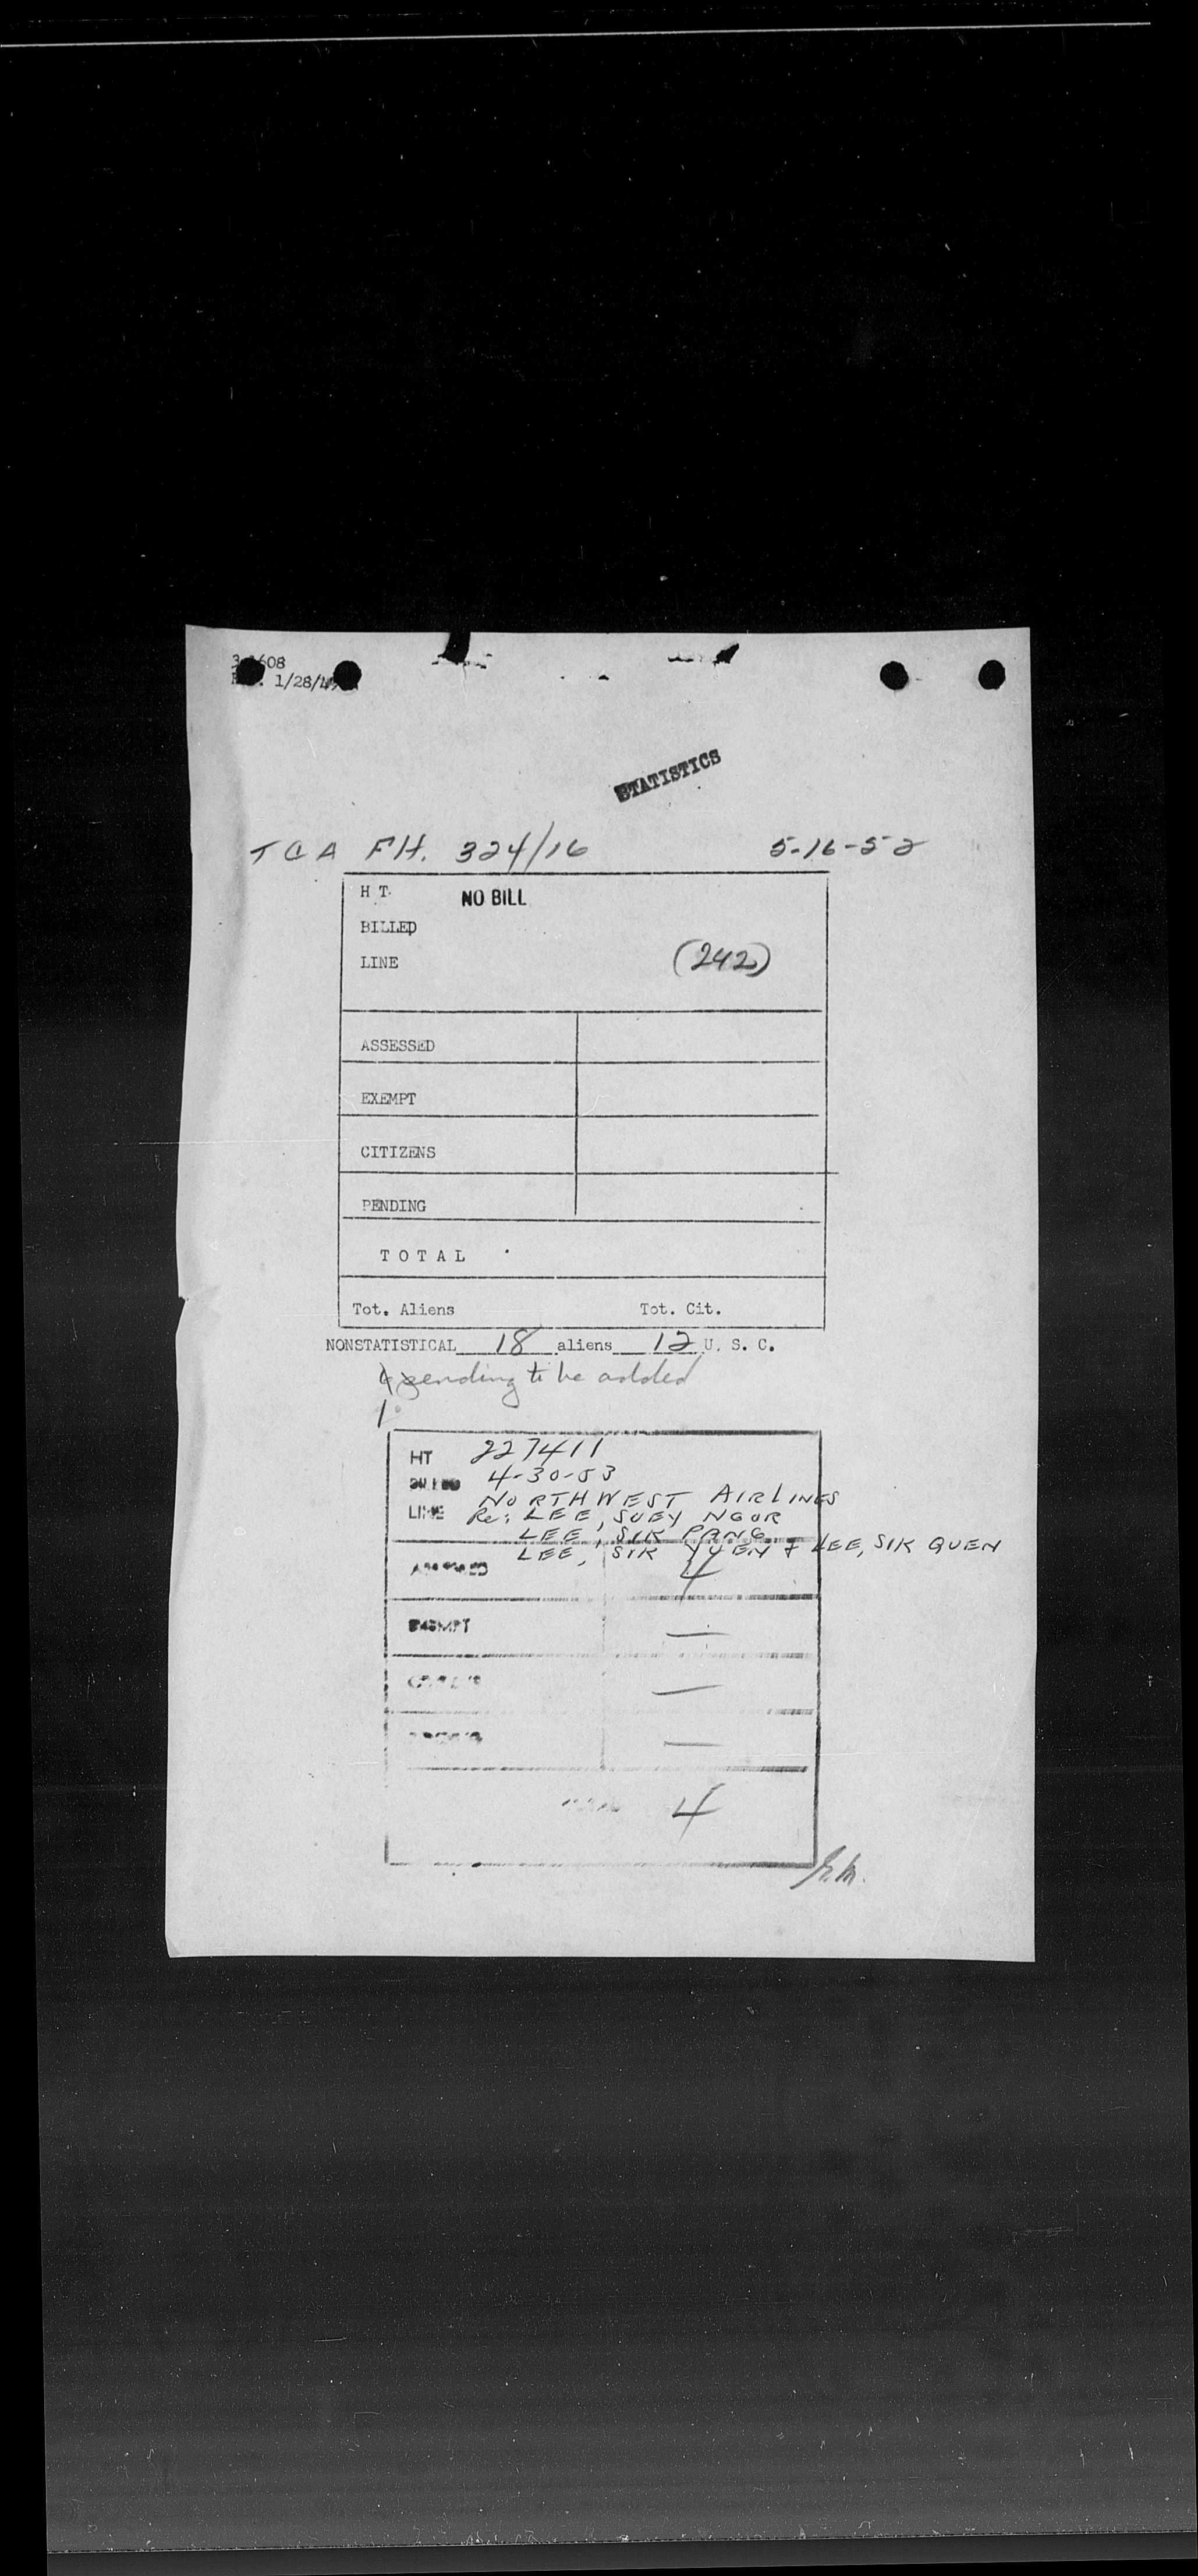 1/28/49
STATISTICS
TCA Flt. 324/16 5-16-52
H T. NO BILL
BILLED
LINE (242)
ASSESSED
EXEMPT
CITIZENS
PENDING
TOTAL
Tot. Aliens Tot. Cit.
NONSTATISTICAL 18 aliens 12 U. S. C.
4 pending to be added
1
HT 227411
BILLED 4-30-53
LINE NORTHWEST AIRLINES
Re: LEE, SUEY NGOR
LEE, SIK PANG
LEE, SIK YUEN & LEE, SIK QUEN
ASSESSED 4
EXEMPT —
—
—
4